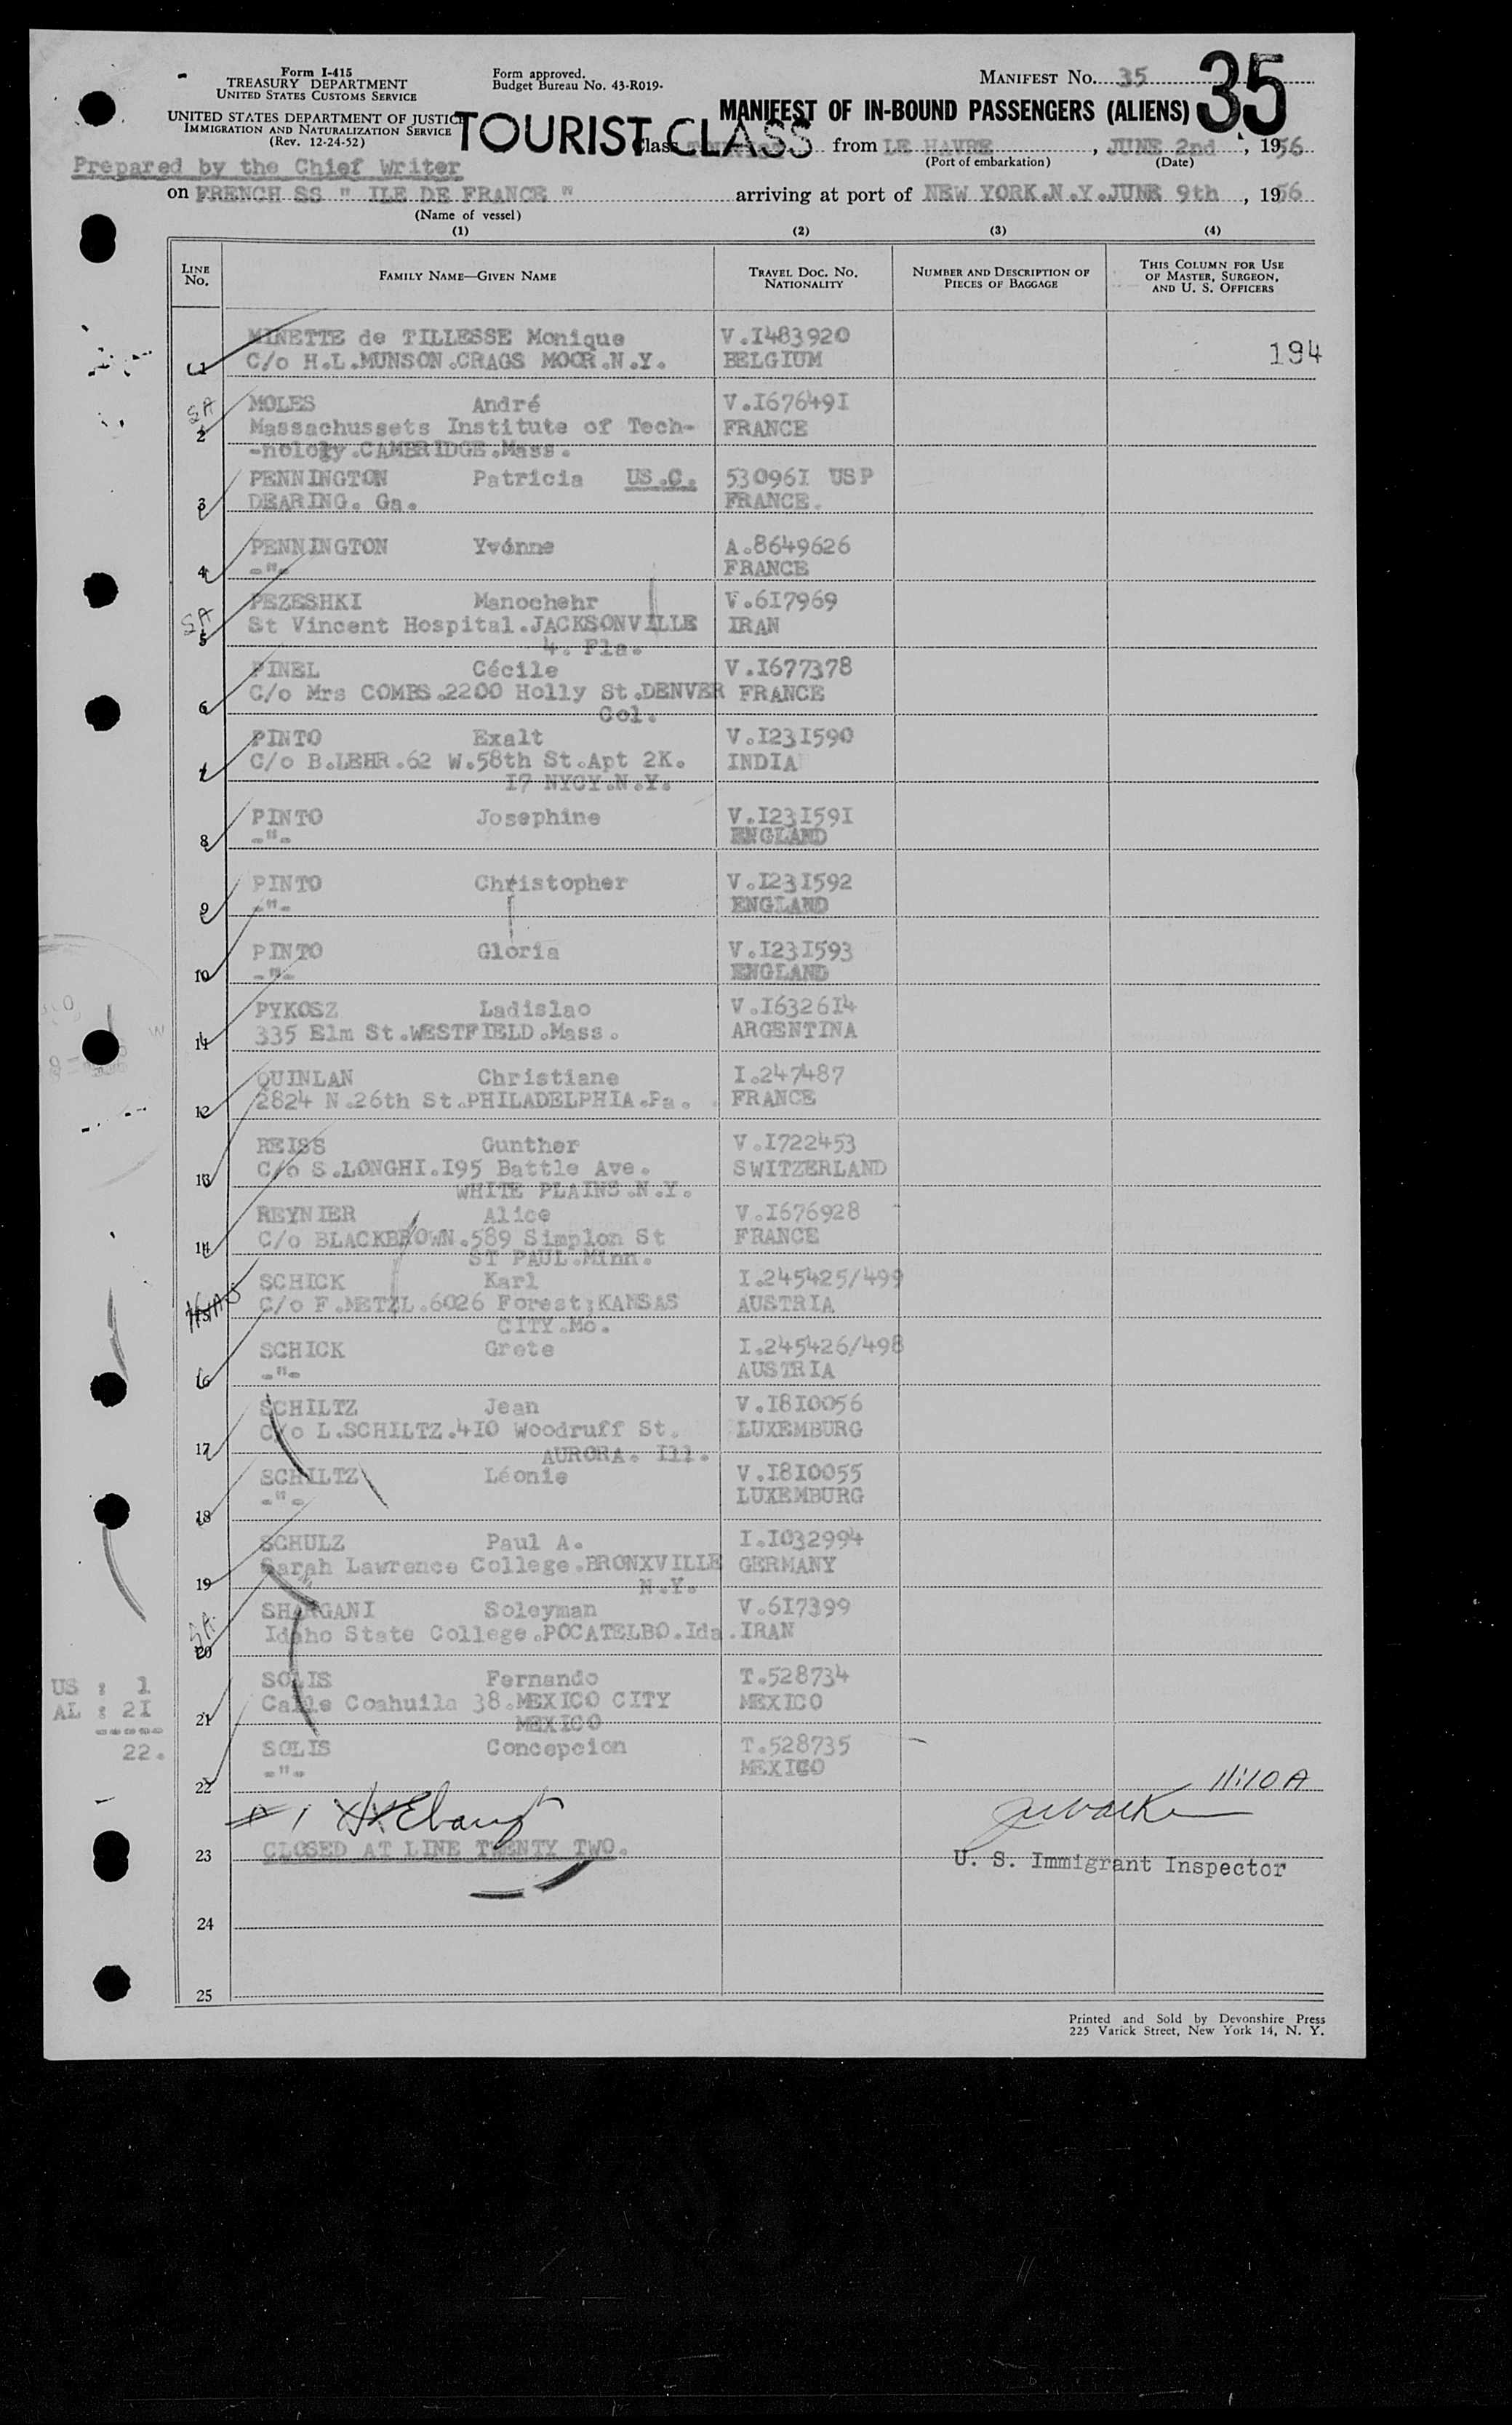 Form I-415
TREASURY DEPARTMENT
UNITED STATES CUSTOMS SERVICE
UNITED STATES DEPARTMENT OF JUSTICE
IMMIGRATION AND NATURALIZATION SERVICE
(Rev. 12-24-52)
Form approved.
Budget Bureau No. 43-R019.
MANIFEST No. 35
35
MANIFEST OF IN-BOUND PASSENGERS (ALIENS)
TOURIST CLASS
Class from LE HAVRE, JUNE 2nd, 1956
(Port of embarkation) (Date)
Prepared by the Chief Writer
on FRENCH SS " ILE DE FRANCE " arriving at port of NEW YORK.N.Y.JUNE 9th, 1956
(Name of vessel)
(1) (2) (3) (4)
LINE No. FAMILY NAME—GIVEN NAME TRAVEL DOC. No. NATIONALITY NUMBER AND DESCRIPTION OF PIECES OF BAGGAGE THIS COLUMN FOR USE OF MASTER, SURGEON, AND U. S. OFFICERS
MINETTE de TILLESSE Monique V.I483920
1 C/o H.L.MUNSON.CRAGS MOOR.N.Y. BELGIUM 194
SA MOLES André V.I67649I
2 Massachussets Institute of Tech- FRANCE
-nology.CAMBRIDGE.Mass.
PENNINGTON Patricia US.C. 53096I USP
3 DEARING. Ga. FRANCE.
PENNINGTON Yvonne A.8649626
4 -"- FRANCE
SA PEZESHKI Manochehr V.6I7969
5 St Vincent Hospital.JACKSONVILLE IRAN
4. Fla.
PINEL Cécile V.I677378
6 C/o Mrs COMBS.2200 Holly St.DENVER FRANCE
Col.
PINTO Exalt V.I23I590
7 C/o B.LEHR.62 W.58th St.Apt 2K. INDIA
I9 NYCY.N.Y.
PINTO Josephine V.I23I59I
8 -"- ENGLAND
PINTO Christopher V.I23I592
9 -"- ENGLAND
PINTO Gloria V.I23I593
10 -"- ENGLAND
PYKOSZ Ladislao V.I6326I4
11 335 Elm St.WESTFIELD.Mass. ARGENTINA
QUINLAN Christiane I.247487
12 2824 N.26th St.PHILADELPHIA.Pa. FRANCE
REISS Gunther V.I722453
13 C/o S.LONGHI.I95 Battle Ave. SWITZERLAND
WHITE PLAINS.N.Y.
REYNIER Alice V.I676928
14 C/o BLACKBROWN.589 Simplon St FRANCE
ST PAUL.Minn.
SCHICK Karl I.245425/499
15 C/o F.METZL.6026 Forest;KANSAS AUSTRIA
CITY.Mo.
SCHICK Grete I.245426/498
16 -"- AUSTRIA
SCHILTZ Jean V.I8I0056
17 C/o L.SCHILTZ.4I0 Woodruff St. LUXEMBURG
AURORA. Ill.
SCHILTZ Léonie V.I8I0055
18 -"- LUXEMBURG
SCHULZ Paul A. I.I032994
19 Sarah Lawrence College.BRONXVILLE GERMANY
N.Y.
SHARGANI Soleyman V.6I7399
SA. 20 Idaho State College.POCATELBO.Ida. IRAN
SOLIS Fernando T.528734
21 Calle Coahuila 38.MEXICO CITY MEXICO
MEXICO
US : 1
AL : 2I
-----
22.
SOLIS Concepcion T.528735
22 -"- MEXICO
11:10 A
23 CLOSED AT LINE TWENTY TWO.
U. S. Immigrant Inspector
24
25
Printed and Sold by Devonshire Press
225 Varick Street, New York 14, N. Y.